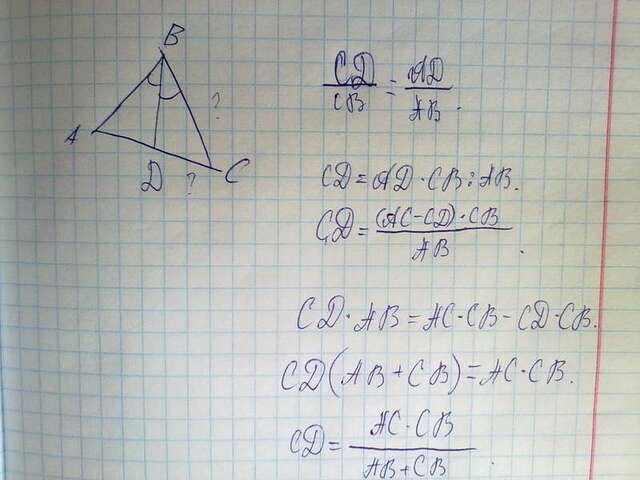 B
A
D
C
?
?
CD/CB = AD/AB.
CD = AD · CB : AB.
CD = (AC-CD)·CB/AB.
CD·AB = AC·CB - CD·CB.
CD(AB+CB) = AC·CB.
CD = AC·CB/AB+CB.